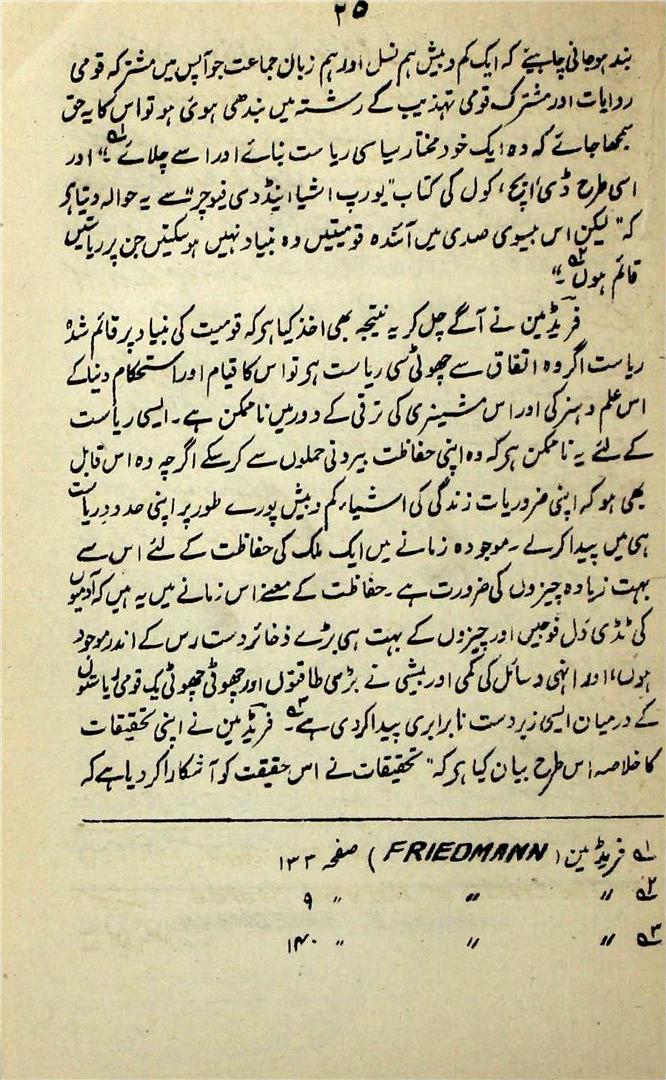 ۲۵
بند ہوجانی چاہیئے کہ ایک کم و بیش ہم نسل اور ہم زبان جماعت جو آپس میں مشترکہ قومی
روایات اور مشترک قومی تہذیب کے رشتہ میں بندھی ہوئی ہو تو اس کا یہ حق
سمجھا جائے کہ وہ ایک خود مختار سیاسی ریاست بنائے اور اسے چلائے۱؎۔" اور
اسی طرح ڈی، ایچ، کول کی کتاب "یورپ اشیا اینڈ دی فیوچر" سے یہ حوالہ دیتا ہو
کہ "لیکن اس بیسوی صدی میں آئندہ قومیتیں وہ بنیاد نہیں ہوسکتیں جن پر ریاستیں
قائم ہوں۲؎۔"
فریڈمین نے آگے چل کر یہ نتیجہ بھی اخذ کیا ہر کہ قومیت کی بنیاد پر قائم شدہ
ریاست اگر وہ اتفاق سے چھوٹی سی ریاست ہر تو اس کا قیام اور استحکام دنیا کے
اس علم و ہنر کی اور اس مشینری کی ترقی کے دور میں ناممکن ہے۔ ایسی ریاست
کے لئے یہ ناممکن ہر کہ وہ اپنی حفاظت بیرونی حملوں سے کرسکے اگرچہ وہ اس قابل
بھی ہو کہ اپنی ضروریات زندگی کی اشیاء کم و بیش پورے طور پر اپنی حدود ریاست
ہی میں پیدا کرلے۔ موجودہ زمانے میں ایک ملک کی حفاظت کے لئے اس سے
بہت زیادہ چیزوں کی ضرورت ہے۔ حفاظت کے معنے اس زمانے میں یہ ہیں کہ آدمیوں
کی ٹڈی دل فوجیں اور چیزوں کے بہت ہی بڑے ذخائر دسترس کے اندر موجود
ہوں، اور انہی وسائل کی کمی اور بیشی نے بڑی طاقتوں اور چھوٹی چھوٹی یک قومی ریاستوں
کے درمیان ایسی زبردست نابرابری پیدا کردی ہے۳؎۔ فریڈمین نے اپنی تحقیقات
کا خلاصہ اس طرح بیان کیا ہر کہ "تحقیقات نے اس حقیقت کو آشکارا کردیا ہے کہ
۱؎ فریڈمین (FRIEDMANN) صفحہ ۱۳۳
۲؎ " " " ۹
۳؎ " " " ۱۴۰